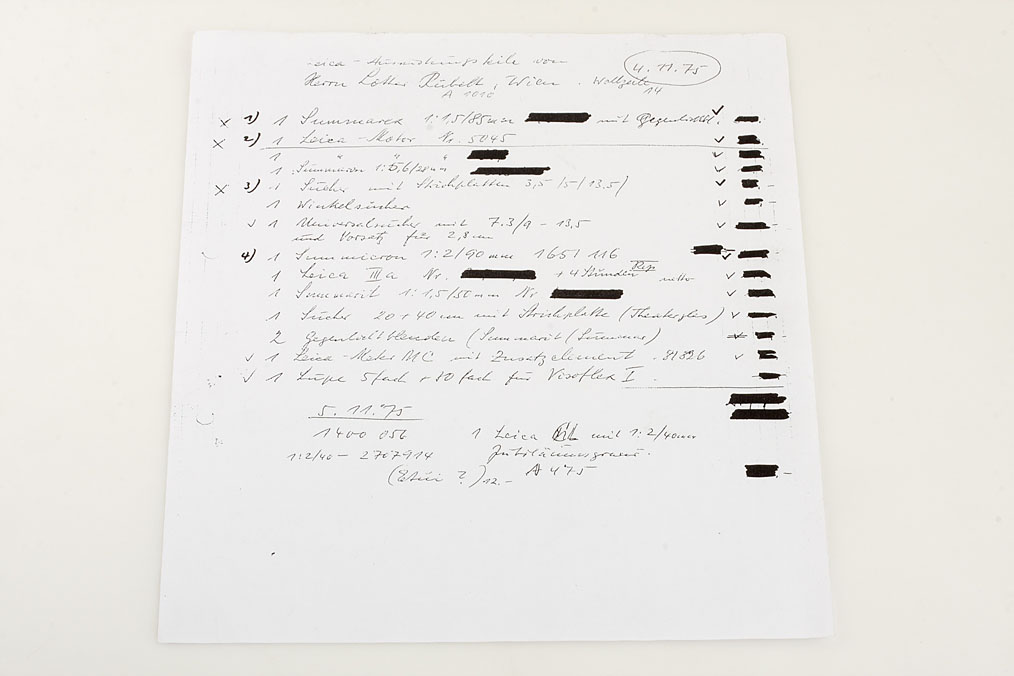 Leica - Ausrüstungsteile von
4.11.75
Herrn Lothar Rübelt, Wien. Wollzeile
14
A 1010
x 1) 1 Summarex 1:1,5/85mm mit Gegenlichtbl.
x 2) 1 Leica-Motor Nr. 5045
1 " " "
1 Summaron 1:5,6/28mm
x 3) 1 Sucher mit Strichplatten 3,5/5/13,5)
1 Winkelsucher
1 Universalsucher mit 7.3/9 - 13,5
und Vorsatz für 2,8 cm
4) 1 Summicron 1:2/90mm 1651 116
1 Leica IIIa Nr. + 4 Stunden Rep netto
1 Summarit 1:1,5/50mm Nr
1 Sucher 20 + 40 cm mit Strichplatte (Theaterglas)
2 Gegenlichtblenden (Summarit/Summar)
1 Leica-Meter MC mit Zusatzelement. 81326
1 Lupe 5fach + 30fach für Visoflex I.
5.11.75
1400 056 1 Leica CL mit 1:2/40mm
1:2/40 - 2707914 Jubiläumsgravur.
(Etui ?) 12.- A 475